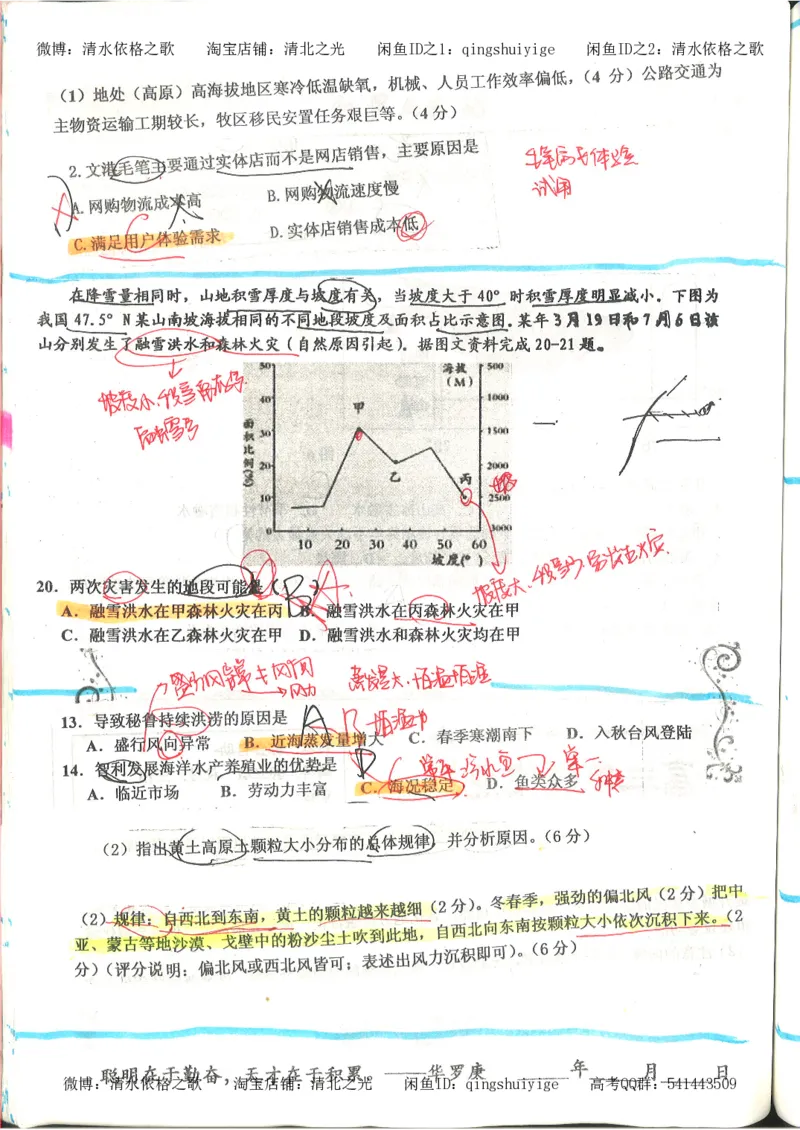 微博：清水依格之歌 淘宝店铺：清北之光 闲鱼ID之1：qingshuiyige 闲鱼ID之2：清水依格之歌
（1）地处（高原）高海拔地区寒冷低温缺氧，机械、人员工作效率偏低，（4 分）公路交通为
主物资运输工期较长，牧区移民安置任务艰巨等。（4 分）
2.文港毛笔主要通过实体店而不是网店销售，主要原因是
A.网购物流成本高 B.网购物流速度慢
C.满足用户体验需求 D.实体店销售成本低
试用
在降雪量相同时，山地积雪厚度与坡度有关，当坡度大于 40° 时积雪厚度明显减小。下图为
我国 47.5° N某山南坡海拔相同的不同地段坡度及面积占比示意图。某年 3 月 19 日和 7 月 6 日该
山分别发生了融雪洪水和森林火灾（自然原因引起）。据图文资料完成 20-21 题。
50 海拔 500
（M）
40 1000
甲
面积比例(%)
30 1500
20 2000
乙 丙
10 2500
0 3000
10 20 30 40 50 60
坡度(°)
20．两次灾害发生的地段可能是（ B ）
A．融雪洪水在甲森林火灾在丙 B．融雪洪水在丙森林火灾在甲
C．融雪洪水在乙森林火灾在甲 D．融雪洪水和森林火灾均在甲
13．导致秘鲁持续洪涝的原因是 A B
A．盛行风向异常 B．近海蒸发量增大 C．春季寒潮南下 D．入秋台风登陆
14．智利发展海洋水产养殖业的优势是 D C
A．临近市场 B．劳动力丰富 C．海况稳定 D．鱼类众多
（2）指出黄土高原土颗粒大小分布的总体规律，并分析原因。（6 分）
（2）规律：自西北到东南，黄土的颗粒越来越细（2 分）。冬春季，强劲的偏北风（2 分）把中
亚、蒙古等地沙漠、戈壁中的粉沙尘土吹到此地，自西北向东南按颗粒大小依次沉积下来。（2
分）（评分说明：偏北风或西北风皆可；表述出风力沉积即可）。（6 分）
聪明在于勤奋，天才在于积累。——华罗庚 年 月 日
微博：清水依格之歌 淘宝店铺：清北之光 闲鱼ID：qingshuiyige 高考QQ群：541443509